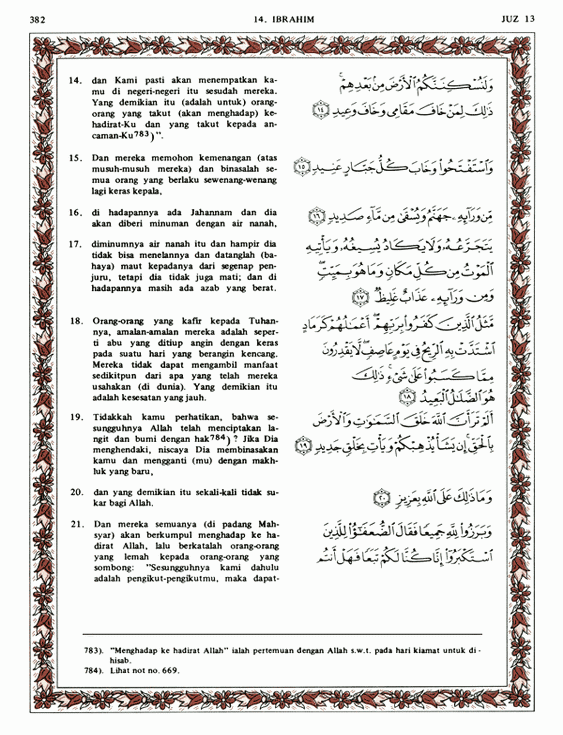 382
14. IBRAHIM
JUZ 13
14. dan Kami pasti akan menempatkan ka-
mu di negeri-negeri itu sesudah mereka.
Yang demikian itu (adalah untuk) orang-
orang yang takut (akan menghadap) ke-
hadirat-Ku dan yang takut kepada an-
caman-Ku783)".
15. Dan mereka memohon kemenangan (atas
musuh-musuh mereka) dan binasalah se-
mua orang yang berlaku sewenang-wenang
lagi keras kepala,
16. di hadapannya ada Jahannam dan dia
akan diberi minuman dengan air nanah,
17. diminumnya air nanah itu dan hampir dia
tidak bisa menelannya dan datanglah (ba-
haya) maut kepadanya dari segenap pen-
juru, tetapi dia tidak juga mati; dan di
hadapannya masih ada azab yang berat.
18. Orang-orang yang kafir kepada Tuhan-
nya, amalan-amalan mereka adalah seper-
ti abu yang ditiup angin dengan keras
pada suatu hari yang berangin kencang.
Mereka tidak dapat mengambil manfaat
sedikitpun dari apa yang telah mereka
usahakan (di dunia). Yang demikian itu
adalah kesesatan yang jauh.
19. Tidakkah kamu perhatikan, bahwa se-
sungguhnya Allah telah menciptakan la-
ngit dan bumi dengan hak784) ? Jika Dia
menghendaki, niscaya Dia membinasakan
kamu dan mengganti (mu) dengan makh-
luk yang baru,
20. dan yang demikian itu sekali-kali tidak su-
kar bagi Allah.
21. Dan mereka semuanya (di padang Mah-
syar) akan berkumpul menghadap ke ha-
dirat Allah, lalu berkatalah orang-orang
yang lemah kepada orang-orang yang
sombong: "Sesungguhnya kami dahulu
adalah pengikut-pengikutmu, maka dapat-
وَلَنُسْكِنَنَّكُمُ الْأَرْضَ مِنْ بَعْدِهِمْ
ذَٰلِكَ لِمَنْ خَافَ مَقَامِي وَخَافَ وَعِيدِ ١٤
وَاسْتَفْتَحُوا وَخَابَ كُلُّ جَبَّارٍ عَنِيدٍ ١٥
مِنْ وَرَائِهِ جَهَنَّمُ وَيُسْقَىٰ مِنْ مَاءٍ صَدِيدٍ ١٦
يَتَجَرَّعُهُ وَلَا يَكَادُ يُسِيغُهُ وَيَأْتِيهِ
الْمَوْتُ مِنْ كُلِّ مَكَانٍ وَمَا هُوَ بِمَيِّتٍ
وَمِنْ وَرَائِهِ عَذَابٌ غَلِيظٌ ١٧
مَثَلُ الَّذِينَ كَفَرُوا بِرَبِّهِمْ أَعْمَالُهُمْ كَرَمَادٍ
اشْتَدَّتْ بِهِ الرِّيحُ فِي يَوْمٍ عَاصِفٍ لَا يَقْدِرُونَ
مِمَّا كَسَبُوا عَلَىٰ شَيْءٍ ذَٰلِكَ
هُوَ الضَّلَالُ الْبَعِيدُ ١٨
أَلَمْ تَرَ أَنَّ اللَّهَ خَلَقَ السَّمَاوَاتِ وَالْأَرْضَ
بِالْحَقِّ إِنْ يَشَأْ يُذْهِبْكُمْ وَيَأْتِ بِخَلْقٍ جَدِيدٍ ١٩
وَمَا ذَٰلِكَ عَلَى اللَّهِ بِعَزِيزٍ ٢٠
وَبَرَزُوا لِلَّهِ جَمِيعًا فَقَالَ الضُّعَفَاءُ لِلَّذِينَ
اسْتَكْبَرُوا إِنَّا كُنَّا لَكُمْ تَبَعًا فَهَلْ أَنْتُمْ
783). "Menghadap ke hadirat Allah" ialah pertemuan dengan Allah s.w.t. pada hari kiamat untuk di-
hisab.
784). Lihat not no. 669.